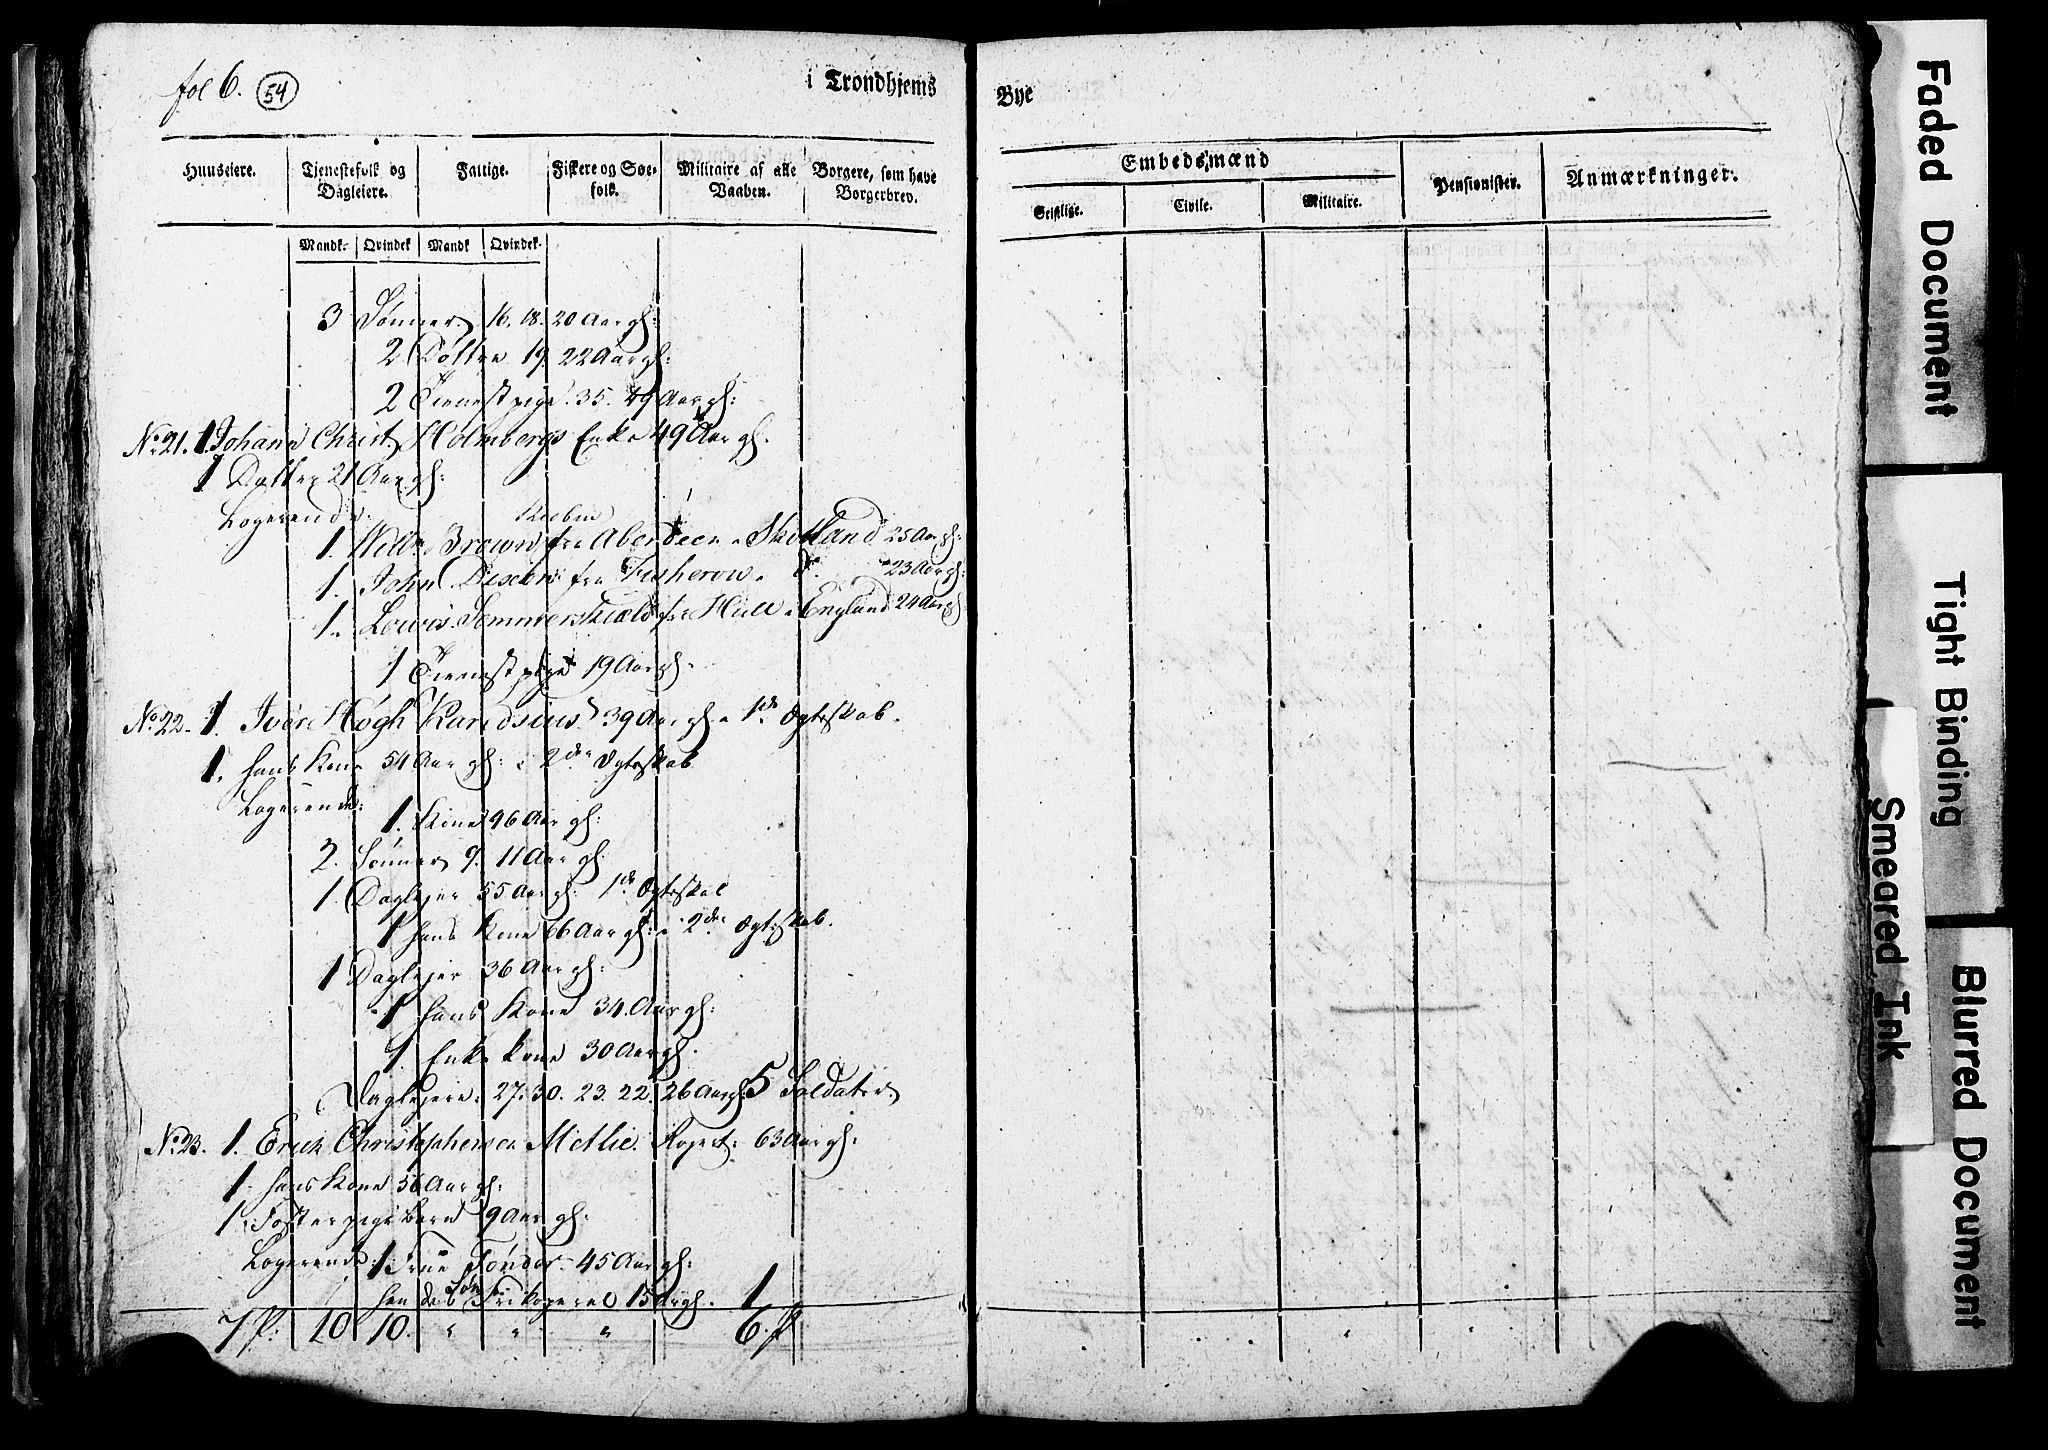 fol 6. 54
i Trondhjems
Bye
Huuseiere.
Tjenestefolk og Dagleiere.
Fattige.
Fiskere og Søefolk.
Militaire af alle Vaaben.
Borgere, som have Borgerbrev.
Mandk. Qvindek Mandk Qvindek.
Embedsmænd
Geistlige.
Civile.
Militaire.
Pensionister.
Anmærkninger.
3 Sønner 16. 18. 20 Aar gl:
2 Døttre 19. 22 Aar gl:
2 Tienestpige. 35. 49 Aar gl:
No. 21. 1. Johann Christ. Holmbergs Enke 49 Aar gl.
1 Datter 21 Aar gl:
Logerende.
1. Will. Brown fra Aberdeen i Skotland 25 Aar gl:
1. John fra Fisherow i do. 23 Aar gl:
1. Lowis Sommerskield fra Hull i England 24 Aar gl
1 Tienestpige 19 Aar gl:
No. 22. 1. Iver Høgh 39 Aar gl i 1de Ægteskab.
1. hans Kone 54 Aar gl: i 2den Ægteskab
Logerende:
1. Kone 46 Aar gl:
2. Sønner 9. 11 Aar gl:
1 Daglejer 55 Aar gl: 1de Ægteskab
1 hans Kone 66 Aar gl: i 2den Ægteskab.
1 Daglejer 36 Aar gl:
1 hans Kone 34. Aar gl:
1. Enke kone 30 Aar gl.
Daglejere. 27. 30. 23. 22. 26 Aar gl: 5 Soldater.
No. 23. 1. Erick Christophersen Metlie. 63 Aar gl:
1 hans Kone 56 Aar gl:
1. Foster pigebarn 9 Aar gl:
Logerende. 1 Frue Tønder 45 Aar gl:
hendes Søn 15 Aar gl. 1
7 P: 10 10. " " " 6. P
Faded Document
Tight Binding
Smeared Ink
Blurred Document